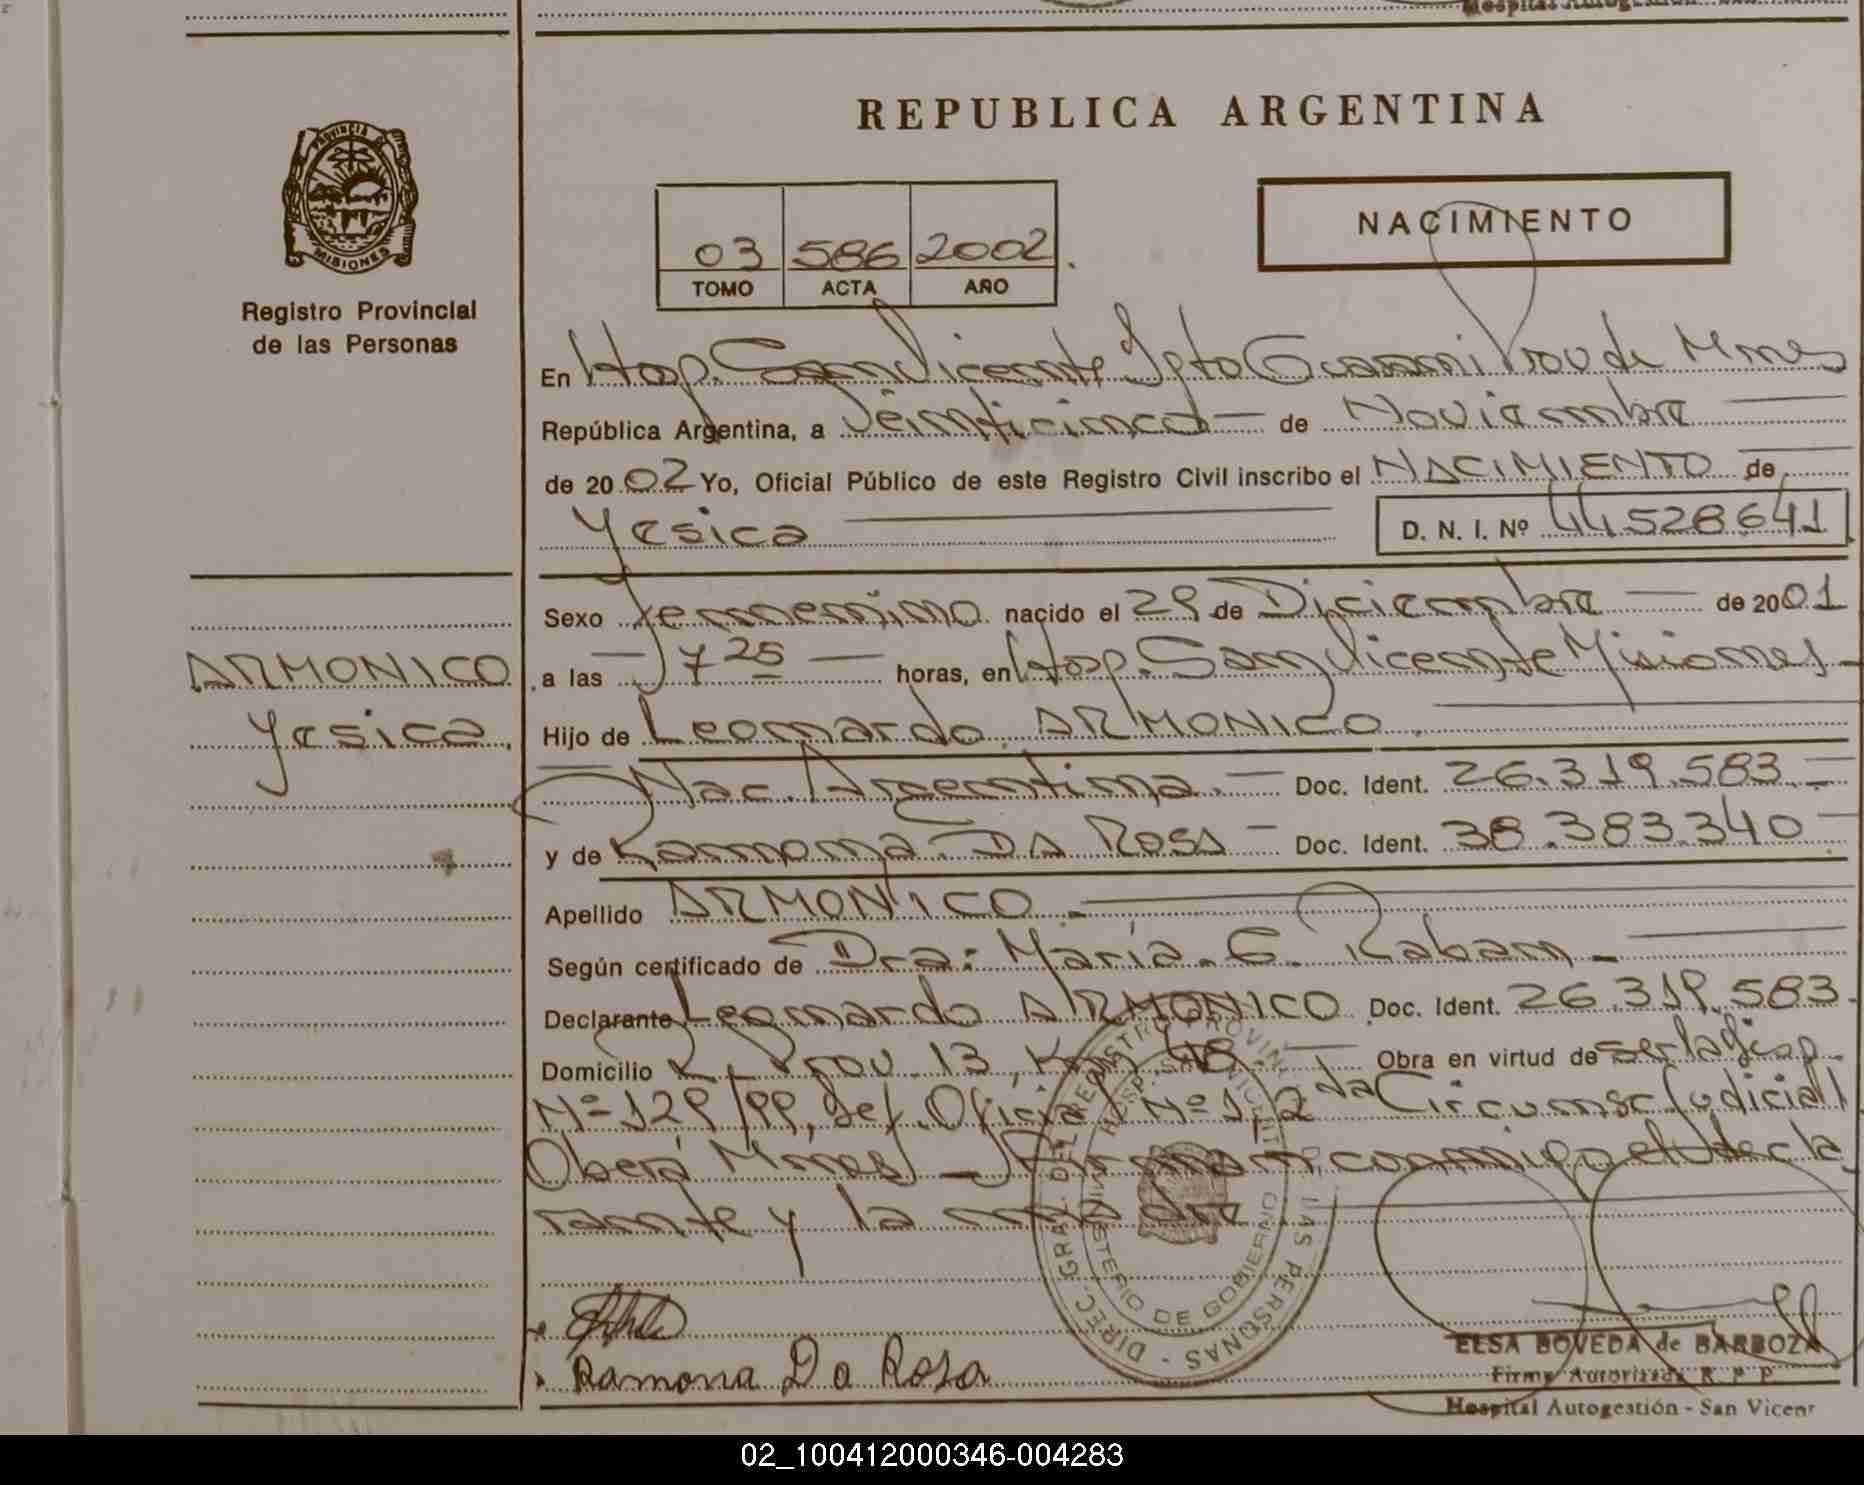 REPUBLICA ARGENTINA
PROVINCIA DE
MISIONES
Registro Provincial
de las Personas
03 586 2002.
TOMO ACTA AÑO
NACIMIENTO
En Hosp. San Vicente Dpto Guaraní Prov de Mnes
República Argentina, a Veinticinco — de Noviembre —
de 2002 Yo, Oficial Público de este Registro Civil inscribo el NACIMIENTO de
Yesica — D. N. I. Nº 44528641
Sexo Femenino nacido el 29 de Diciembre — de 2001
ARMONICO
Yesica.
a las — 17 25 — horas, en Hosp. San Vicente Misiones —
Hijo de Leonardo ARMONICO. —
— Nac. Argentina. — Doc. Ident. 26.319.583 —
y de Ramona DA ROSA — Doc. Ident. 38.383.340 —
Apellido ARMONICO. —
Según certificado de Dra: María. G. Raban —
Declarante Leonardo ARMONICO Doc. Ident. 26.319.583.
Domicilio R. Prov. 13, Km 48 — Obra en virtud de ser la Disp.
Nº 129/99, Def. Oficial Nº 1, 2da Circunsc Judicial
Oberá Mnes) — Firman conmigo el decla
rante y la madre
DIREC. GRAL. DEL REGISTRO PROVINCIAL DE LAS PERSONAS
HOSP. SAN VICENTE
MINISTERIO DE GOBIERNO
Ramona Da Rosa
ELSA BOVEDA de BARBOZA
Firma Autorizada R. P. P.
Hospital Autogestión - San Vicent
02_100412000346-004283